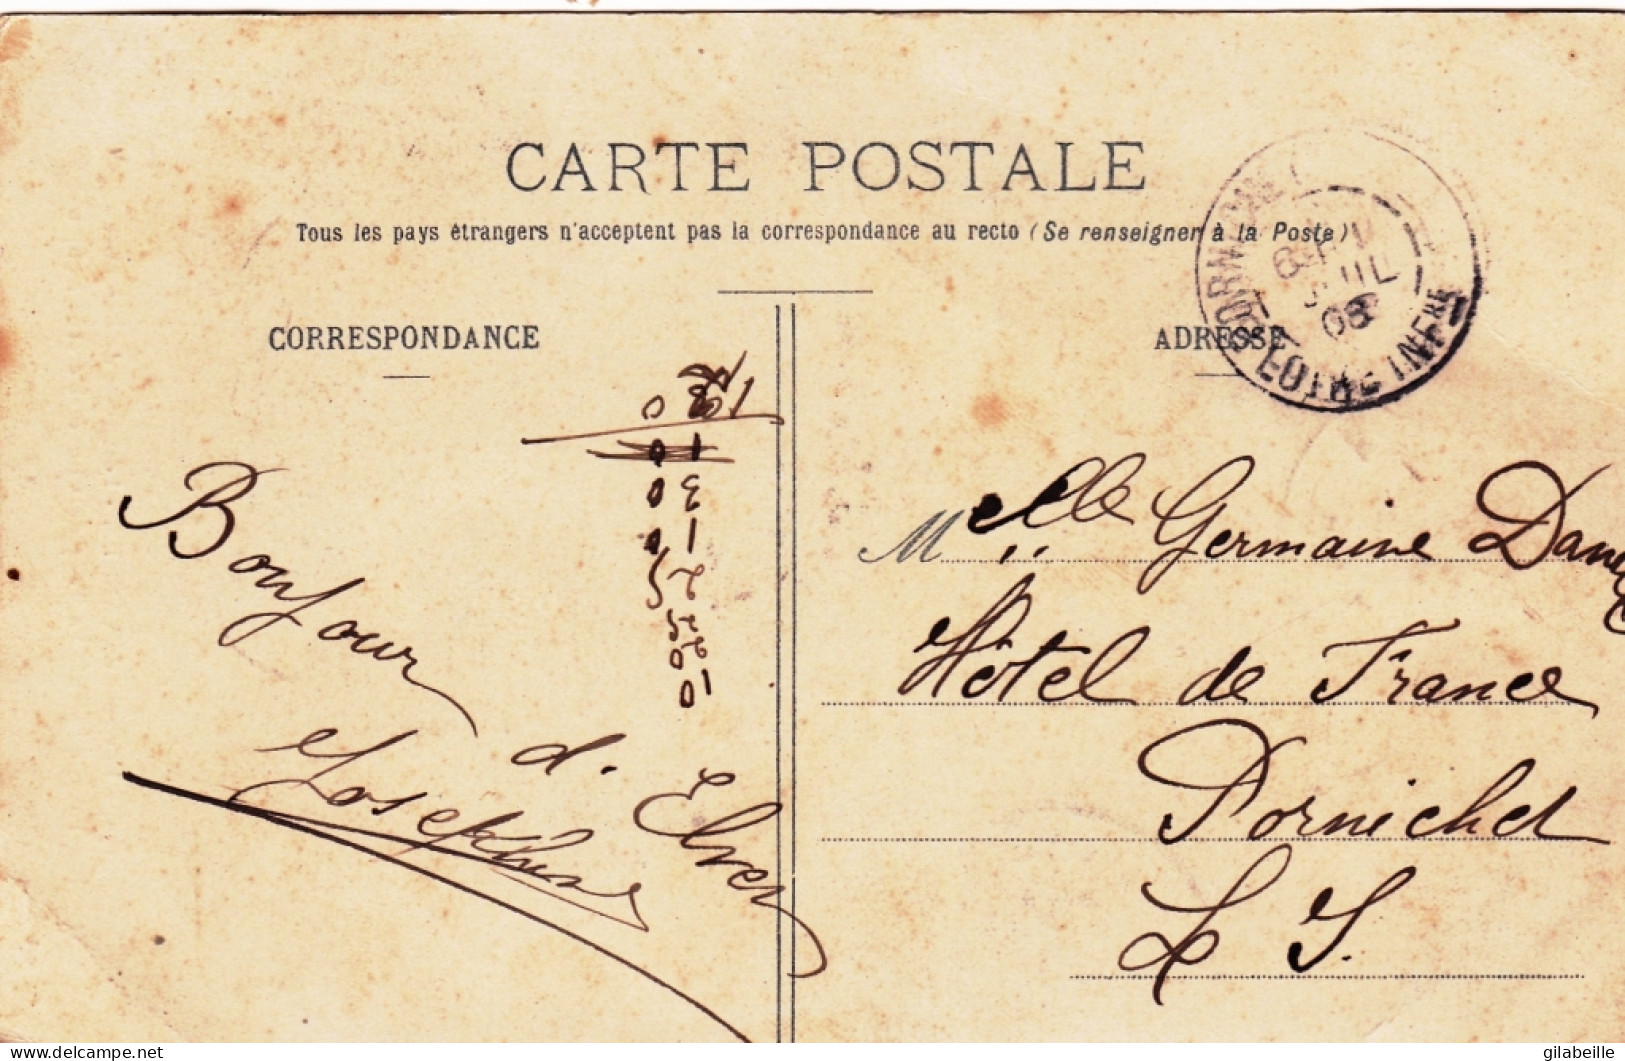 CARTE POSTALE
Tous les pays étrangers n'acceptent pas la correspondance au recto (Se renseigner à la Poste)
CORRESPONDANCE
ADRESSE
JUIL
08
LOIRE INFRE
Bonjour
d.
Joséphine
Melle Germaine
Hôtel de France
Pornichet
L I.
delcampe.net
gilabeille